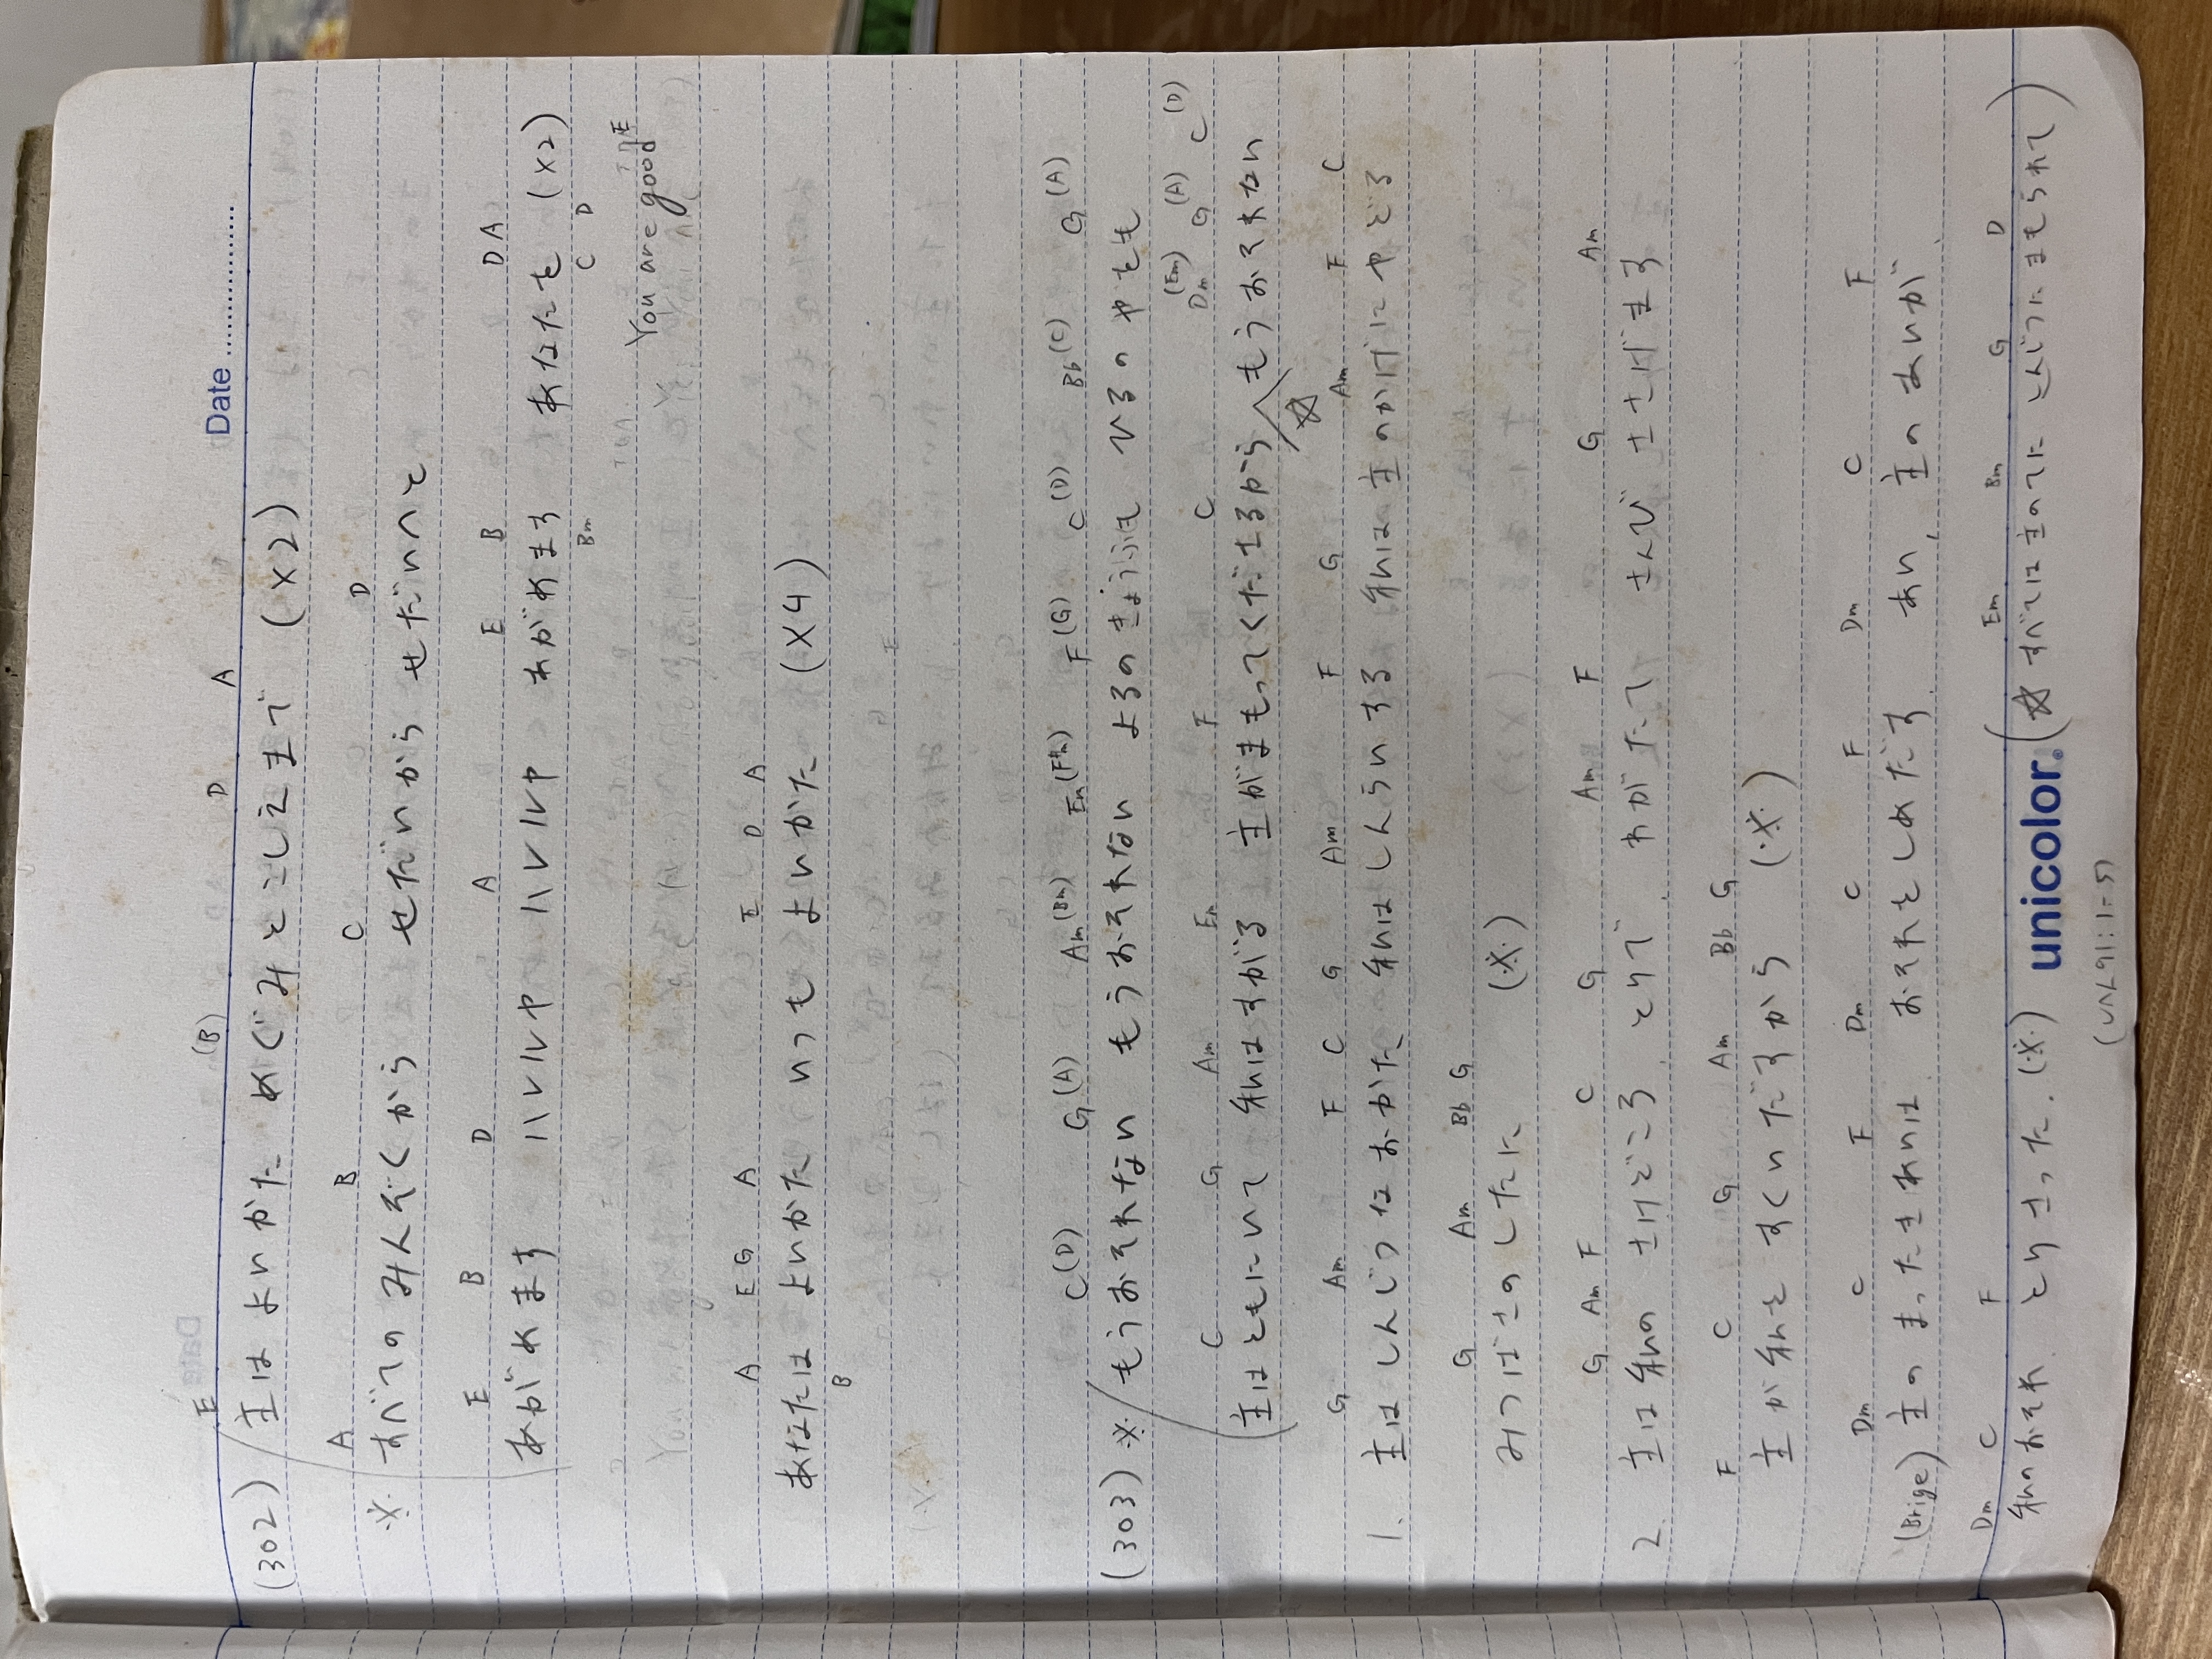 Date
E (B) D A
(302) 主は よいかた めぐみ とこしえまで (×2)
A B C D
※ すべての みんぞくから せだいから せだいへと
E B D A E B D A
あがめます ハレルヤ ハレルヤ あがめます あなたを (×2)
Bm C D
You are good
A E G A E D A
あなたは よいかた いつも よいかた (×4)
B
C(D) G(A) Am(Bm) Em(F#m) F(G) C(D) Bb(C) G(A)
(303) ※ もうおそれない もうおそれない よるのきょうふも ひるのやも
C G Am Em F C Dm(Em) G(A) C(D)
主はともにいて 私はすがる 主がまもってくださるから もうおそれない
☆
G Am F C G Am F G Am F C
1. 主はしんじつなおかた 私はしんらいする 私は主のかげにやどる
G Am Bb G
みつばさのしたに (※)
G Am F C G Am F G Am
2. 主は私の さけどころ とりで わがたて さんび ささげます
F C G Am Bb G
主が私を すくいだすから (※)
Dm C F Dm C F Dm C F
(Brige) 主の まったきあいは おそれをしめだす あい、主のあいが
Dm C F Em Bm G D
私のおそれ とりさった. (※) (☆ すべては主のてに しんじつにまもられて)
unicolor.
(しへん91:1-5)